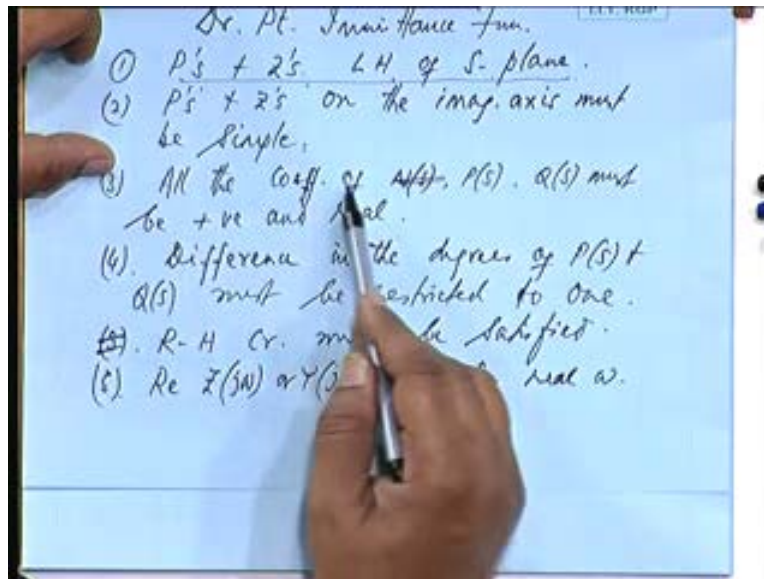 I.I.T. KGP
Dr. Pt. Immittance fun.
(1) P's + Z's LH of S-plane.
(2) P's + Z's on the imag. axis must
be Simple.
(3) All the Coeff. of P(S). Q(S) must
be +ve and real.
(4). Difference in the degrees of P(S) +
Q(S) must be restricted to one.
(5). R-H Cr. must be Satisfied.
(5) Re Z(jω) or Y(j real ω.